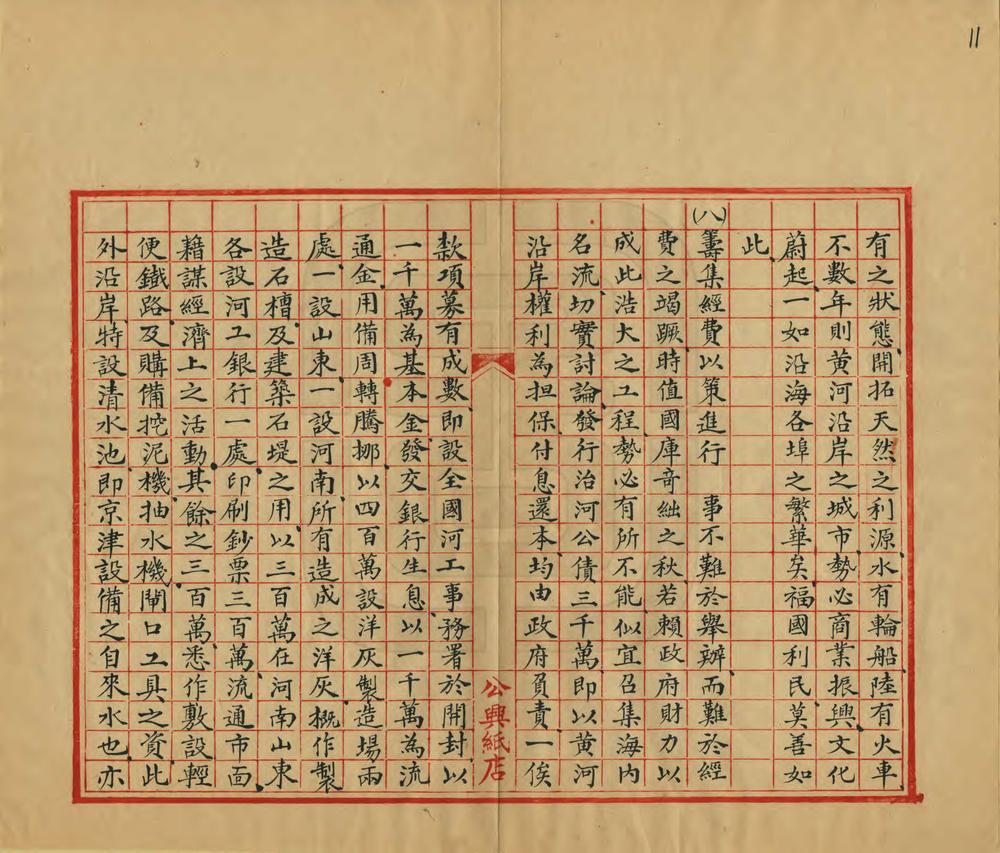 11
有之狀態、開拓天然之利源、水有輪船、陸有火車、
不數年則黃河沿岸之城市、勢必商業振興、文化
蔚起、一如沿海各埠之繁華矣、福國利民、莫善如
此、
(八)籌集經費以策進行 事不難於舉辦、而難於經
費之竭蹶、時值國庫奇絀之秋、若賴政府財力以
成此浩大之工程、勢必有所不能、似宜召集海內
名流、切實討論、發行治河公債三千萬、即以黃河
沿岸權利為担保、付息還本、均由政府負責、一俟
公興紙店
款項募有成數、即設全國河工事務署於開封、以
一千萬為基本金、發交銀行生息、以一千萬為流
通金、用備周轉騰挪、以四百萬設洋灰製造場兩
處、一設山東、一設河南、所有造成之洋灰、概作製
造石槽、及建築石堤之用、以三百萬在河南山東
各設河工銀行一處、印刷鈔票三百萬、流通市面、
藉謀經濟上之活動、其餘之三百萬、悉作敷設輕
便鐵路、及購備挖泥機、抽水機、閘口工具之資、此
外沿岸、特設清水池、即京津設備之自來水也、亦